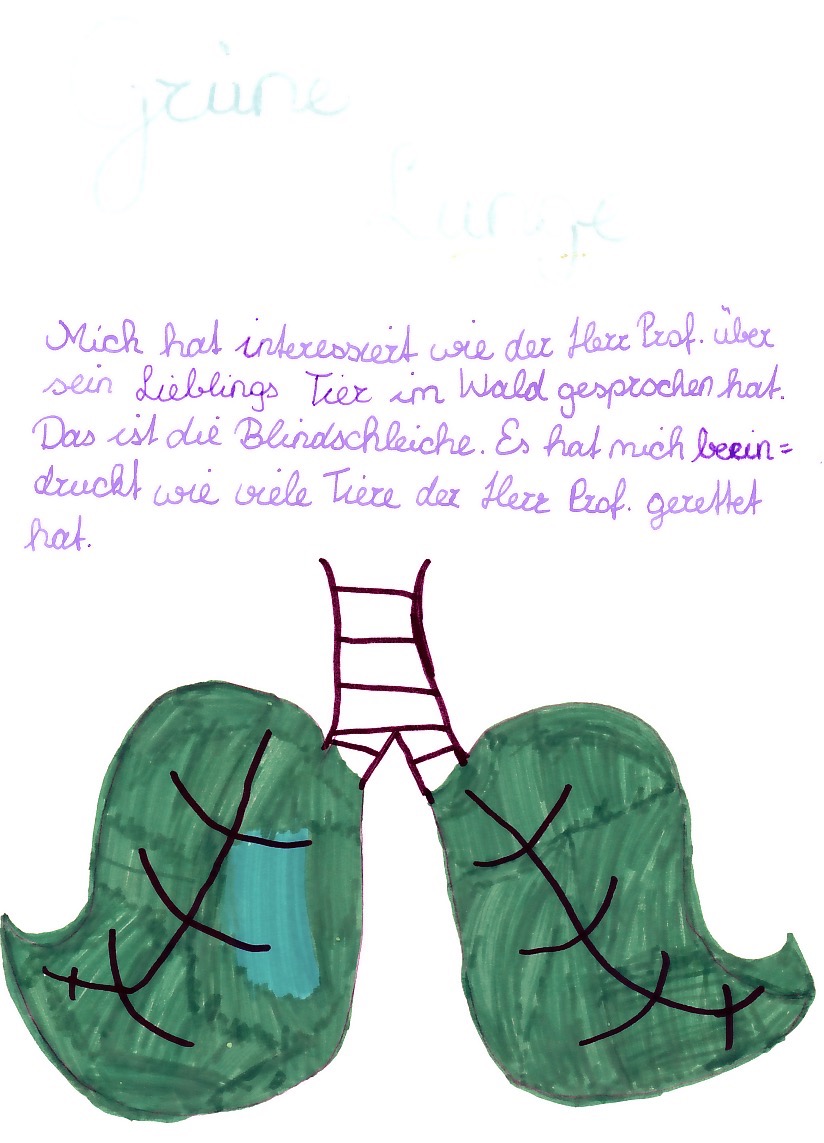 Grüne
Lunge
Mich hat interessiert wie der Herr Prof. über
sein Lieblings Tier im Wald gesprochen hat.
Das ist die Blindschleiche. Es hat mich beein=
druckt wie viele Tiere der Herr Prof. gerettet
hat.